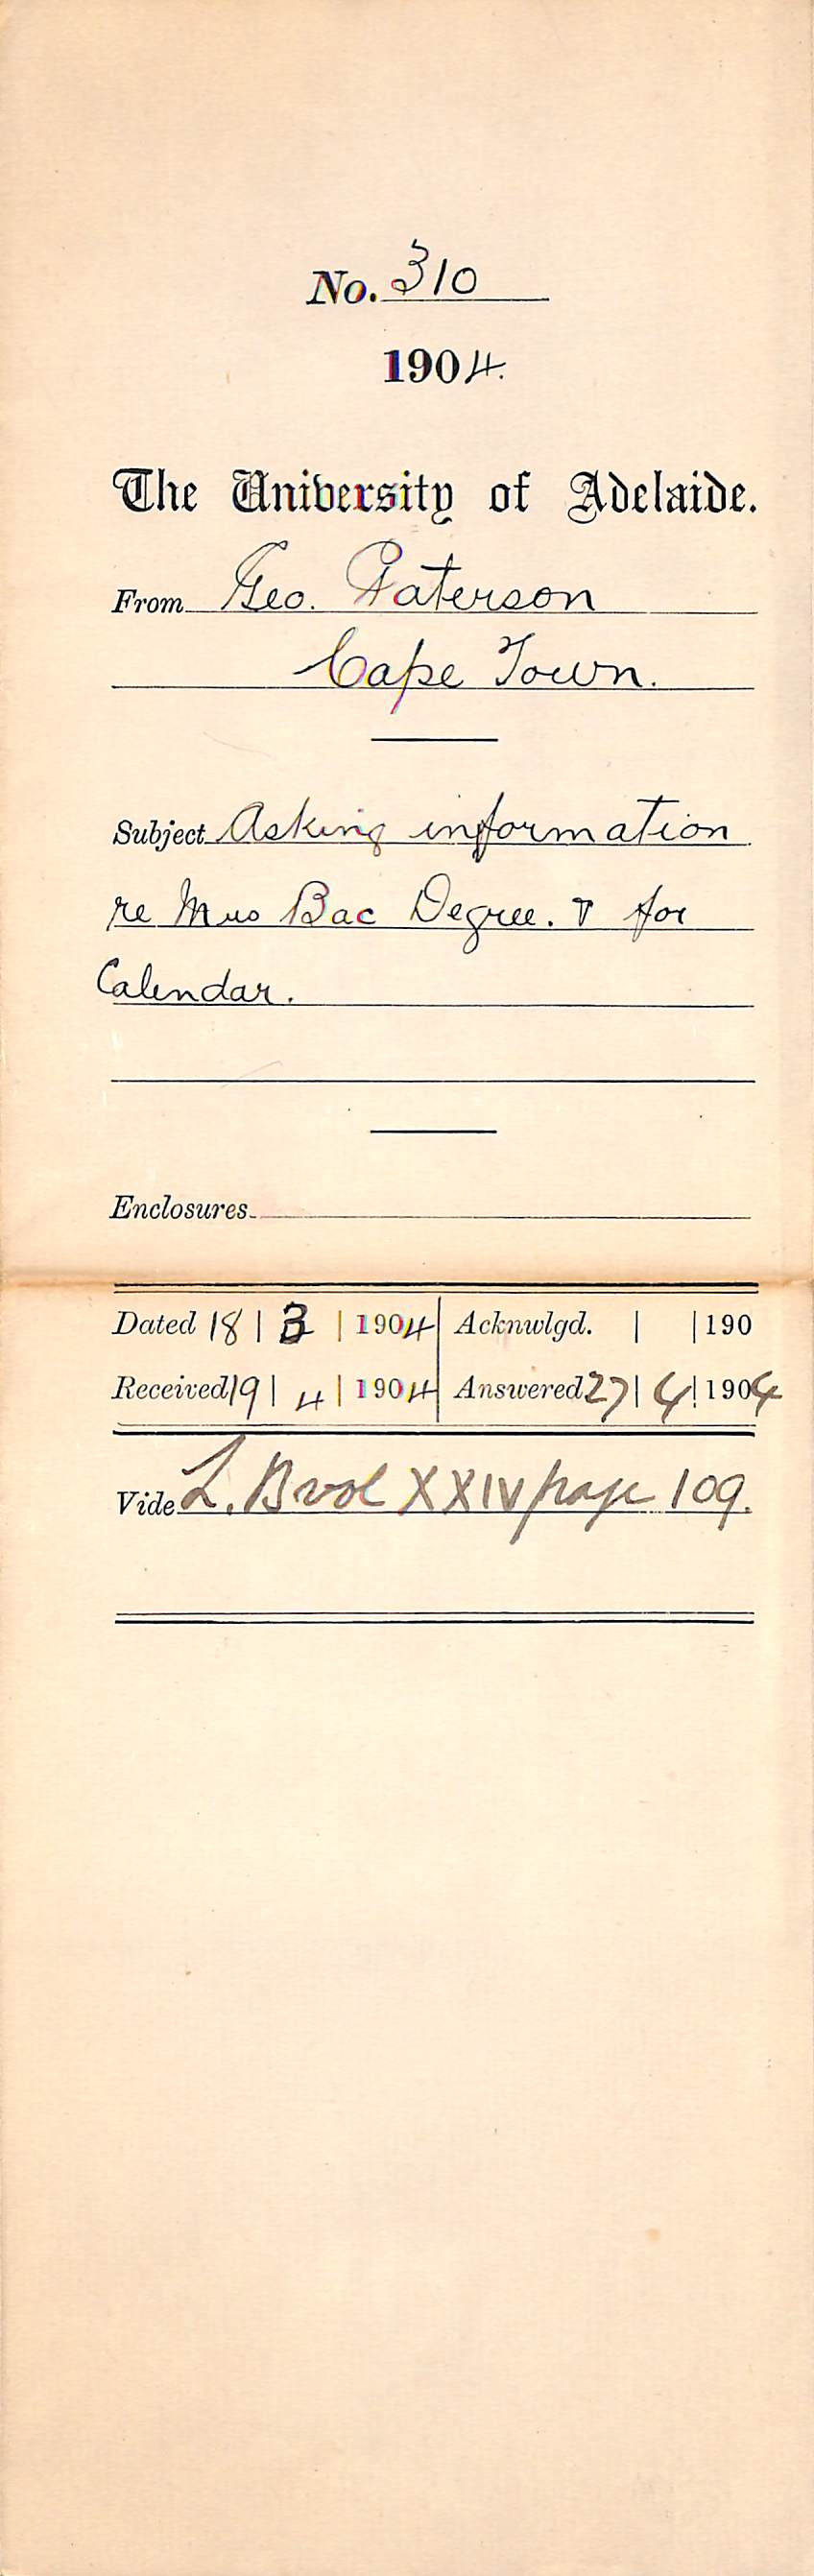 No. 310
1904.
The University of Adelaide.
From Geo. Paterson
Cape Town.
Subject Asking information
re Mus Bac Degree. & for
Calendar.
Enclosures
Dated 18 | 3 | 1904 Acknwlgd. | | 190
Received 19 | 4 | 1904 Answered 27 | 4 | 1904
Vide L. B vol XXIV page 109.